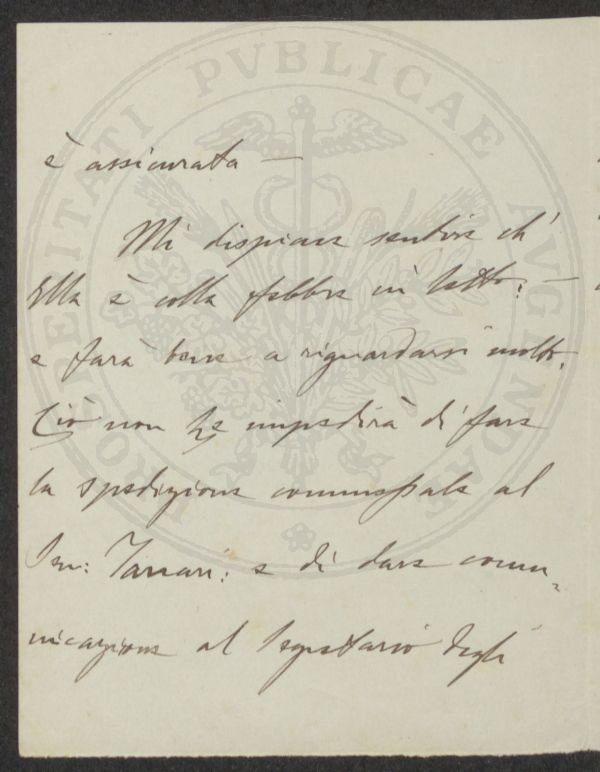 è assicurata —
Mi dispiace sentire ch'
Ella è colla febbre in letto: —
e farà bene a riguardarsi molto.
Ciò non Le impedirà di fare
la spedizione commissale al
Sen: Tanari: e di dare comu-
nicazione al Segretario degli
PROSPERITATI PVBLICAE AVGENDAE